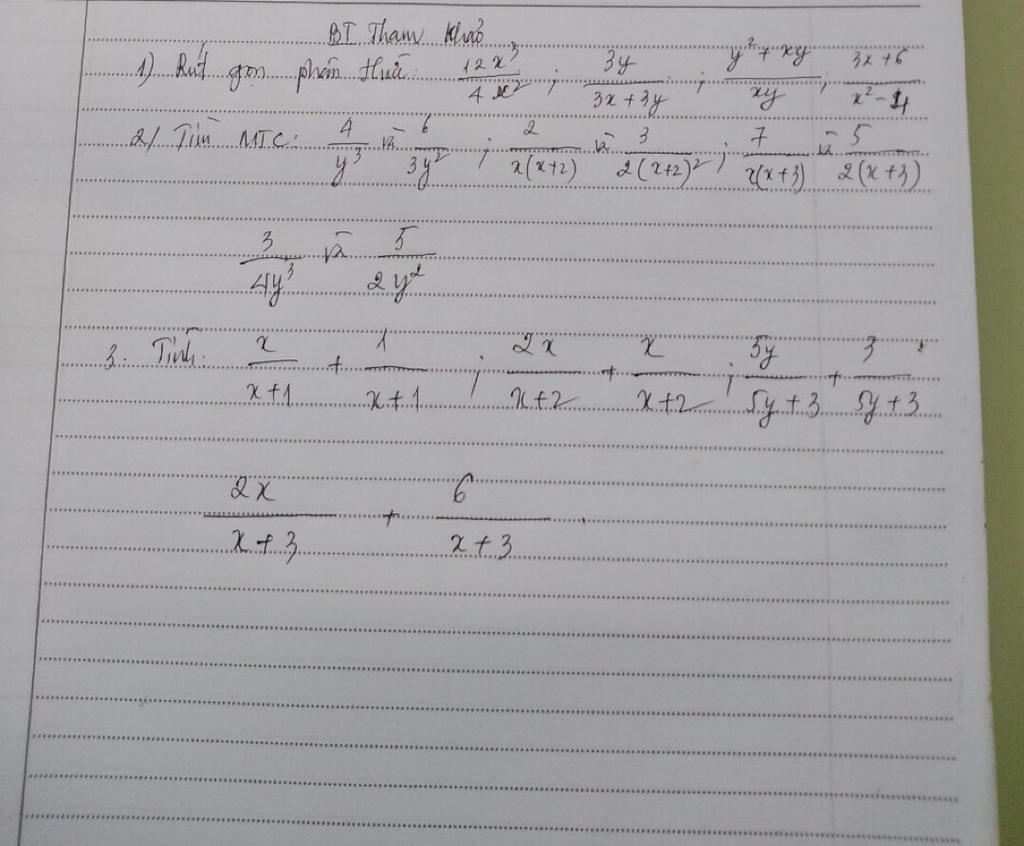 BT Tham khảo
1) Rút gọn phân thức: 12x³/4x² ; 3y/(3x+3y) ; (y²+xy)/xy ; (3x+6)/(x²-4)
2/ Tìm MTC: 4/y³ và 6/3y² ; 2/x(x+2) và 3/2(x+2)² ; 7/x(x+3) và 5/2(x+3)
3/4y³ và 5/2y²
3. Tính: x/(x+1) + 1/(x+1) ; 2x/(x+2) + x/(x+2) ; 5y/(5y+3) + 3/(5y+3)
2x/(x+3) + 6/(x+3) .